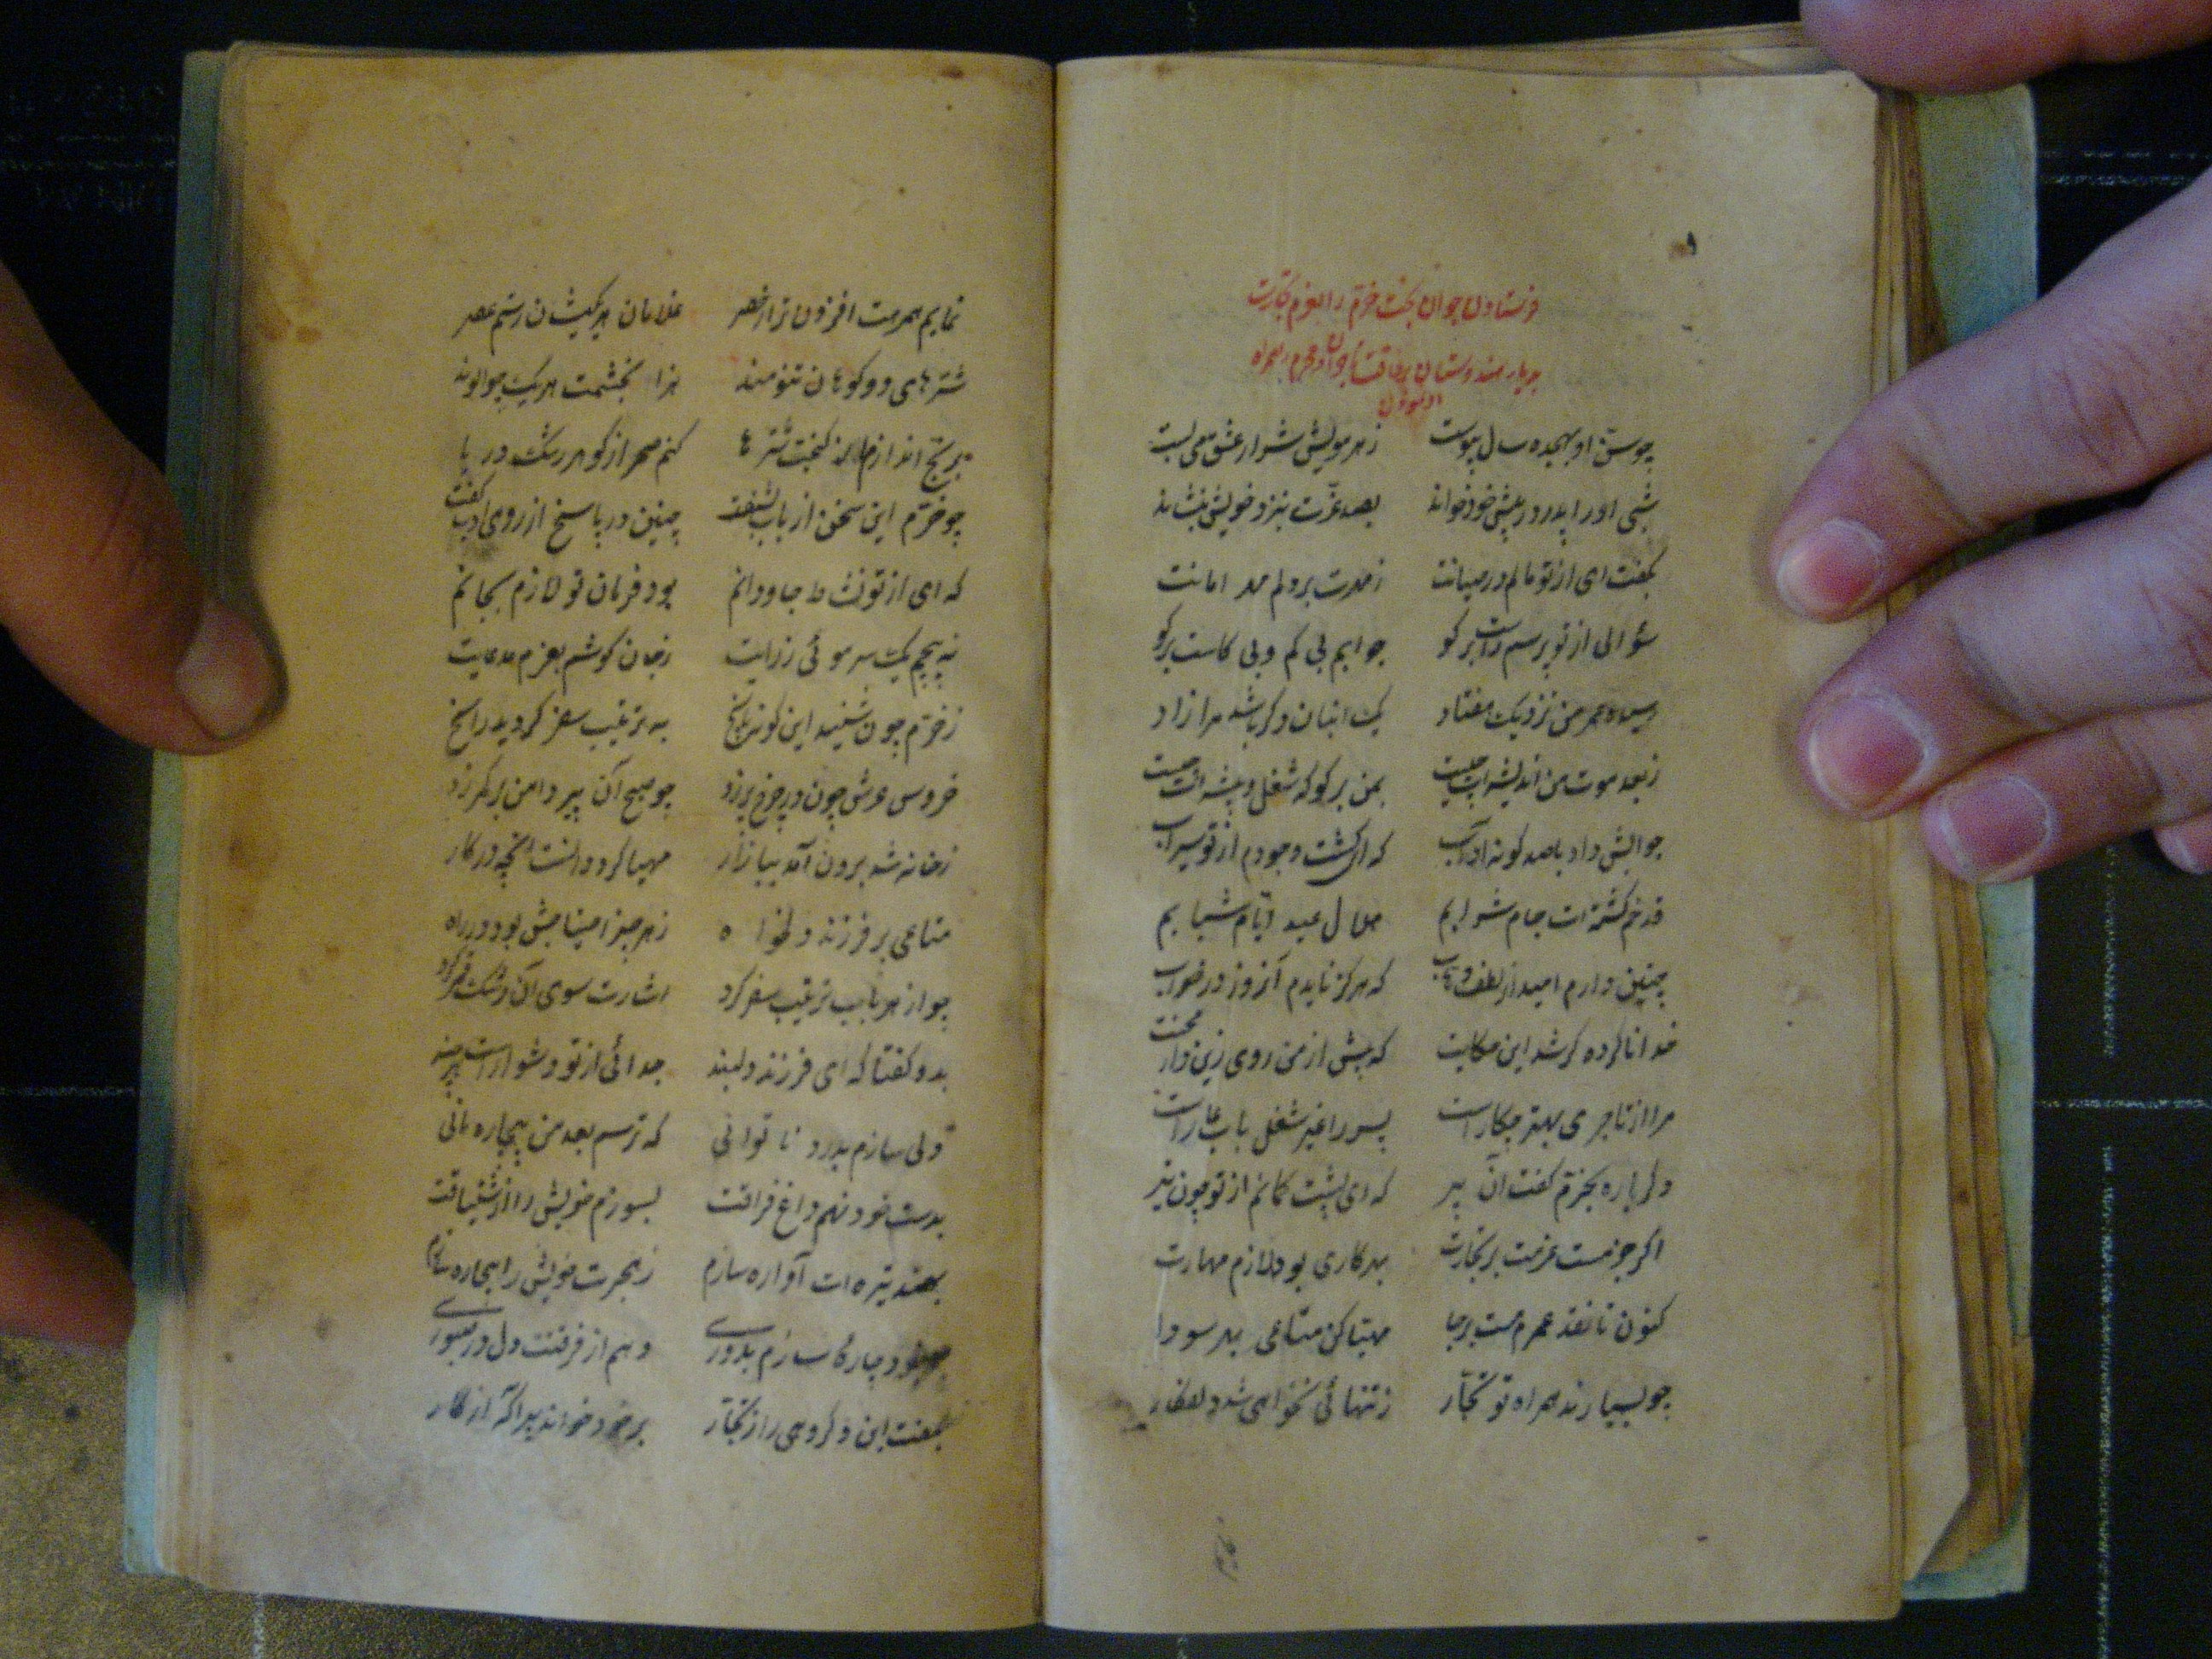 فرستادن جوان بخت خرم را بعزم تجارت
بدیار هندوستان
چو سن او بهجده سال پیوست زهر مویش شرار عشق می جست
شبی او را پدر در پیش خود خواند بصد عزت بنزد خویش بنشاند
بگفت ای از تو مالم در میانت زمهرت بر دلم صد امانت
سؤالی از تو پرسم راست برگو جوابم بی کم و بی کاست برگو
رسیده عمر من نزدیک هفتاد یک انبان و کر باشد مرا زاد
ز بعد موت من اندیشه ات چیست بمن برگو که شغل و پیشه ات چیست
جوابش داد با صد گونه آداب که ای کشت وجودم از تو سیراب
قد خم گشته ات جام شرابم هلال عید ایام شبابم
چنین دارم امید از لطف وهاب که هرگز نایدم آنروز در خواب
خدا ناکرده گر شد این حکایت که پیش از من روی زین دار محنت
مرا از تاجری بهتر چکار است پسر را غیر شغل باب عار است
دگرباره بخرم گفت آن پیر که ای پشت کمانم از تو چون تیر
اگر جزمست عزمت بر تجارت بهر کاری بود لازم مهارت
کنون تا نقد عمرم هست برجا مهیا کن متاعی بهر سودا
چو بسیارند همراه تو تجار ز تنهائی نخواهی شد دلفکار
نمایم همرهت افزون تر از حصر غلامان هر یکیشان رستم عصر
شترهای دو کوهان تنومند هزار بخشمت هر یک چو الوند
کنم صحرا ز گوهر رشک دریا
چو خرم این سخن از باب بشنفت چنین در پاسخ از روی ادب گفت
که ای از تو نشاط جاودانم بود فرمان تو لازم بجانم
نه پیچم یک سر موئی ز رایت ز جان کوشم بعزم مدعایت
ز خرم چون شنید این گونه پاسخ به ترغیب سفر گردید راسخ
خروس عرش چون در چرخ پر زد چو صبح آن پیر دامن بر کمر زد
ز خانه شد برون آمد ببازار مهیا کرد دانست آنچه در کار
متاعی بر فرزند دلخواه زهر چیز احتیاجش بود در راه
چو از هر باب ترغیب سفر کرد اشارت سوی آن رشک قمر کرد
بدو گفتا که ای فرزند دلبند جدائی از تو دشوار است هر چند
ولی سازم بدرد ناتوانی که ترسم بعد من بیچاره مانی
بدست خود نهم داغ فراقت بسوزم خویش را از اشتیاقت
بهند تیره ات آواره سازم ز هجرت خویش را بیچاره سازم
دهم از فرقتت دل در صبوری
بگفت این و گروهی را ز تجار بر خود خواند پیر آگه از کار